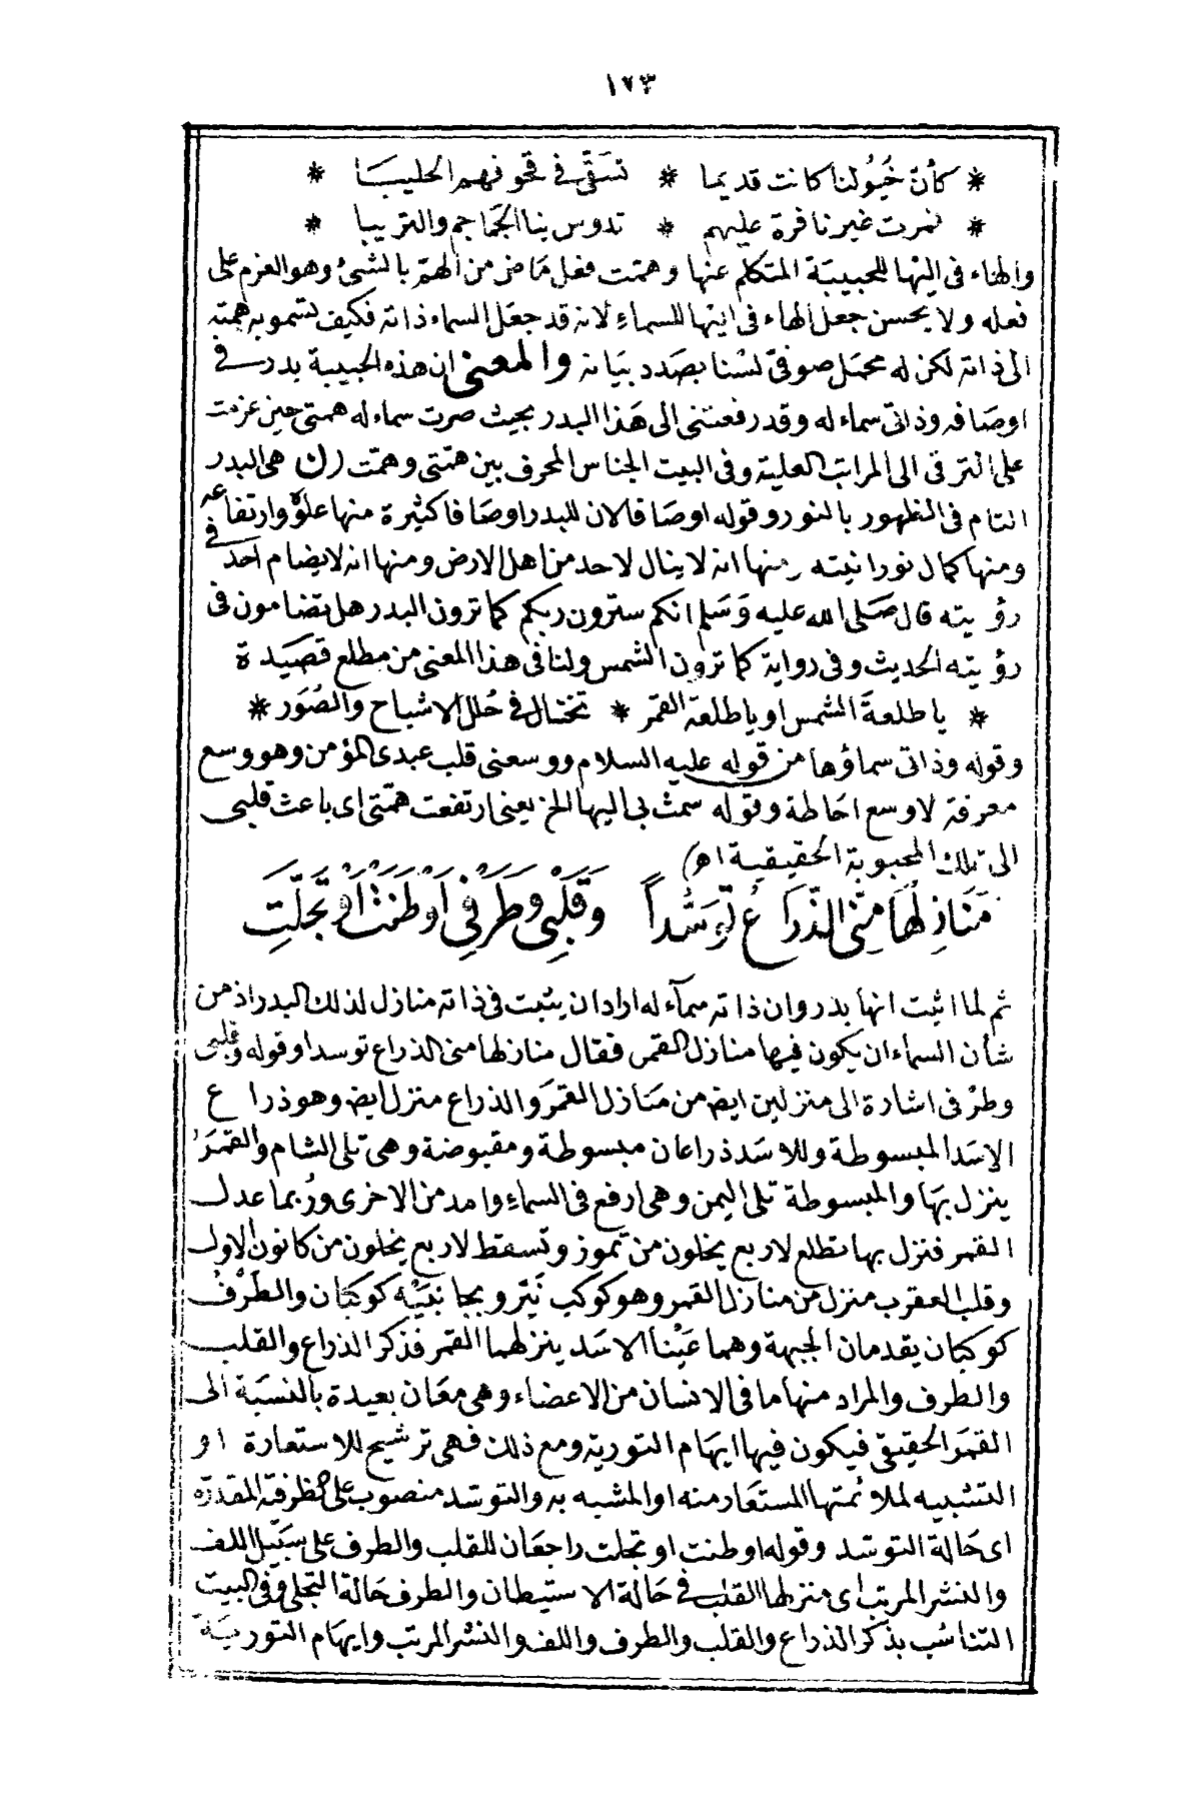 ١٧٣
* كأنّ خُيُولنا كانت قديما * تسَقّى في قحوفهم الحليبَا *
* فمرت غير نافرة عليهم * تدوس بنا الجَماجم والتريبا *
والهاء في اليها للحبيبَة المتكلم عنها وهمت فعل مَاض من الهمّ بالشئ وهو العزم على
فعله ولا يحسن جعل الهاء في اليها للسماءِ لانه قد جعَل السماء ذاته فكيف تسمو به همته
الى ذاته لكن له محمَل صوفيّ لسْنا بصَدد بيَانه والمعنى ان هذه الحبيبة بدر في
اوصَافه وذاتى سماء له وقد رفعتنى الى هَذا البدر بحيث صرت سماء له همتى حين عزمت
على الترقى الى المراتب العلية وفى البيت الجناس المحرف بين همّتى وهمّت (ن) هى البدر
التام فى الظهور بالنور وقوله اوصَافا لان للبدر اوصَافا كثيرة منها علوّه وارتفاعه
ومنها كمال نورانيته ومنها انه لا ينال لاحد من اهل الارض ومنها انه لا يضام احد في
رؤيته قال صَلى الله عليه وَسَلم انكم سترون ربكم كما ترون البدر هل تضامون فى
رؤيته الحديث وفى رواية كما ترون الشمس ولنا فى هذا المعنى من مطلع قصَيدة
* يا طلعةَ الشمس او يا طلعة القمر * تختال في حُلل الاشباح والصُوَر *
وقوله وذاتى سماؤها من قوله عليه السلام ووسعنى قلب عبدى المؤمن وهو وسع
معرفة لا وسع احَاطة وقوله سمتْ بى اليها الخ يعنى ارتفعت همّتى اى باعث قلبى
الى تلك المحبوبة الحقيقية اه)
مَنَازِلُهَا مِنّى الذّرَاعُ تَوَسُّدًا وَقَلْبِى وَطَرْفِى اَوْطَنَتْ اَوْ تَجَلّتِ
ثم لما اثبت انها بدر وان ذاته سمآء له اراد ان يثبت فى ذاته منازل لذلك البدر اذ من
شأن السماء ان يكون فيها منازل القمر فقال منازلها منى الذراع توسدا وقوله وقلبى
وطرْفى اشارة الى منزلين ايض من مَنَازل القمَر والذراع منزل ايض وهو ذراع
الاسَد المبسوطة وللاسَد ذراعان مبسوطة ومقبوضة وهى تلى الشام والقمَرُ
ينزل بهَا والمبسوطة تلى اليمن وهى ارفع فى السماءِ وامد من الاخرى ورُبما عدل
القمر فنزل بها تطلع لاربع يخلون من تموز وتسقط لاربع يخلون من كانون الاول
وقلب العقرب منزل من منازل القمر وهو كوكب نَيّر وبجانبَيْه كوكبَان والطَرْفُ
كوكبَان يقدمان الجبهة وهما عَيْنا الاسَد ينزلهما القمر فذكر الذراع والقلب
والطرف والمراد منها ما فى الانسان من الاعضاء وهى معَان بعيدة بالنسبَة الى
القمَر الحقيقى فيكون فيها ايهَام التورية ومع ذلك فهى ترشيح للاستعارة او
التشبيه لملائمتها المستعَار منه او المشبه به والتوسّد منصوب على الظرفية المقدّرة
اى حَالة التوسّد وقوله اوطنت او تجلت راجعَان للقلب والطرف على سَبيل اللف
والنشر المرتب اى منزلها القلب في حَالة الاستيطان والطرف حَالة التجلى وفى البيت
التناسُب بذكر الذراع والقلب والطرف واللف والنشر المرتب وايهَام التوريَة